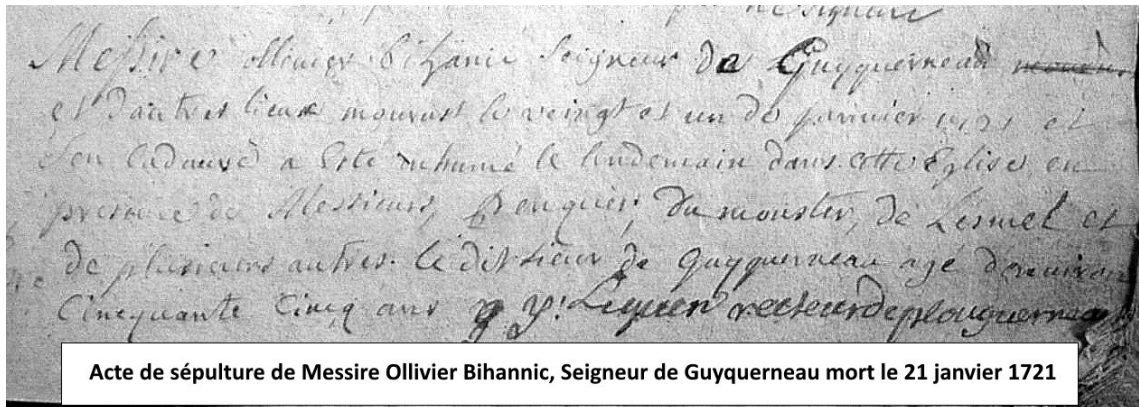 Messire ollivier bihanic Seigneur de Guyquerneau
et dautres lieux mourust le veingt et un de janvier 1721 et
son cadavre a esté inhumé le lendemain dans cette Eglise en
presence de Messieurs, Penquer, du mouster, de Lesmel et
de plusieurs autres. le dit sieur de Guyquerneau agé denviron
Cincquante Cincq ans recteur de plouguerneau
Acte de sépulture de Messire Ollivier Bihannic, Seigneur de Guyquerneau mort le 21 janvier 1721